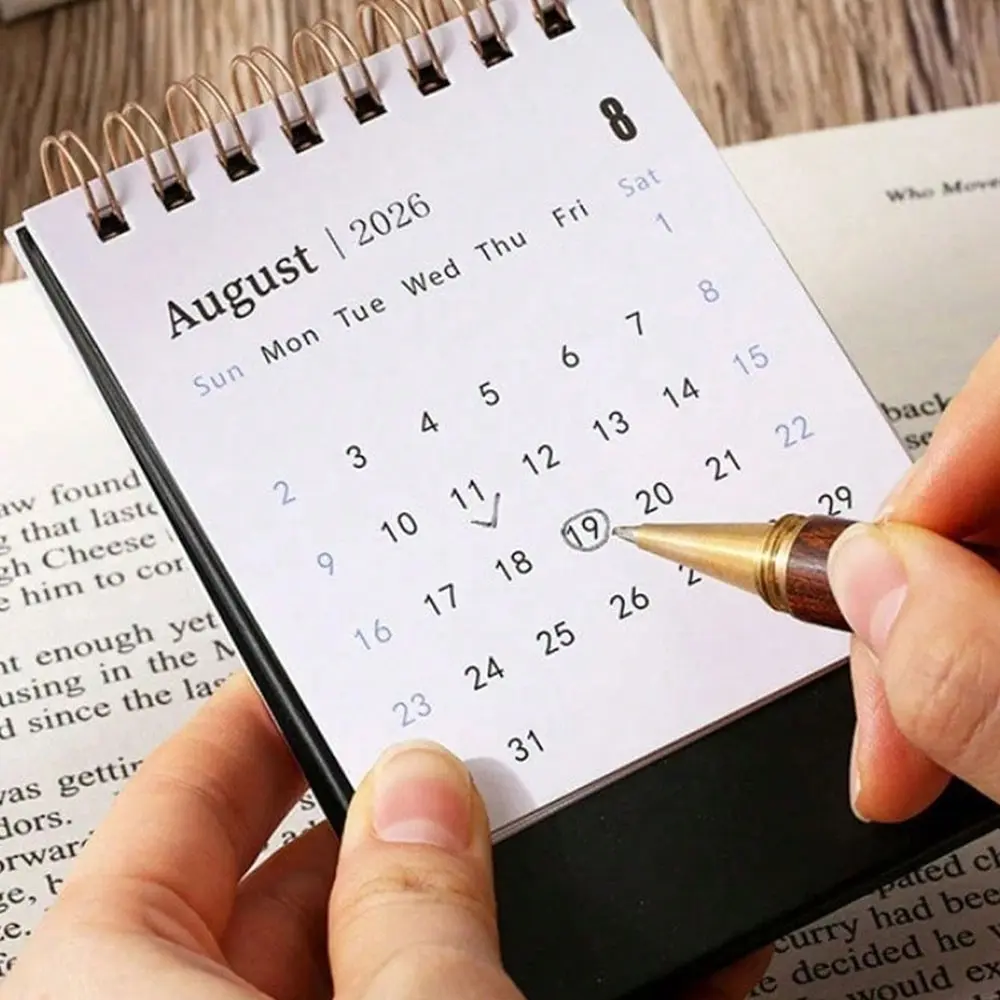 8
August | 2026
Sun Mon Tue Wed Thu Fri Sat
1
2 3 4 5 6 7 8
9 10 11 12 13 14 15
16 17 18 19 20 21 22
23 24 25 26 29
31
Who Move
aw found
g that laste
gh Cheese
e him to cor
nt enough yet
using in the N
d since the las
was gettin
dors.
orward
ge, b
back
se
pated ch
curry had bee
e decided he w
would ex